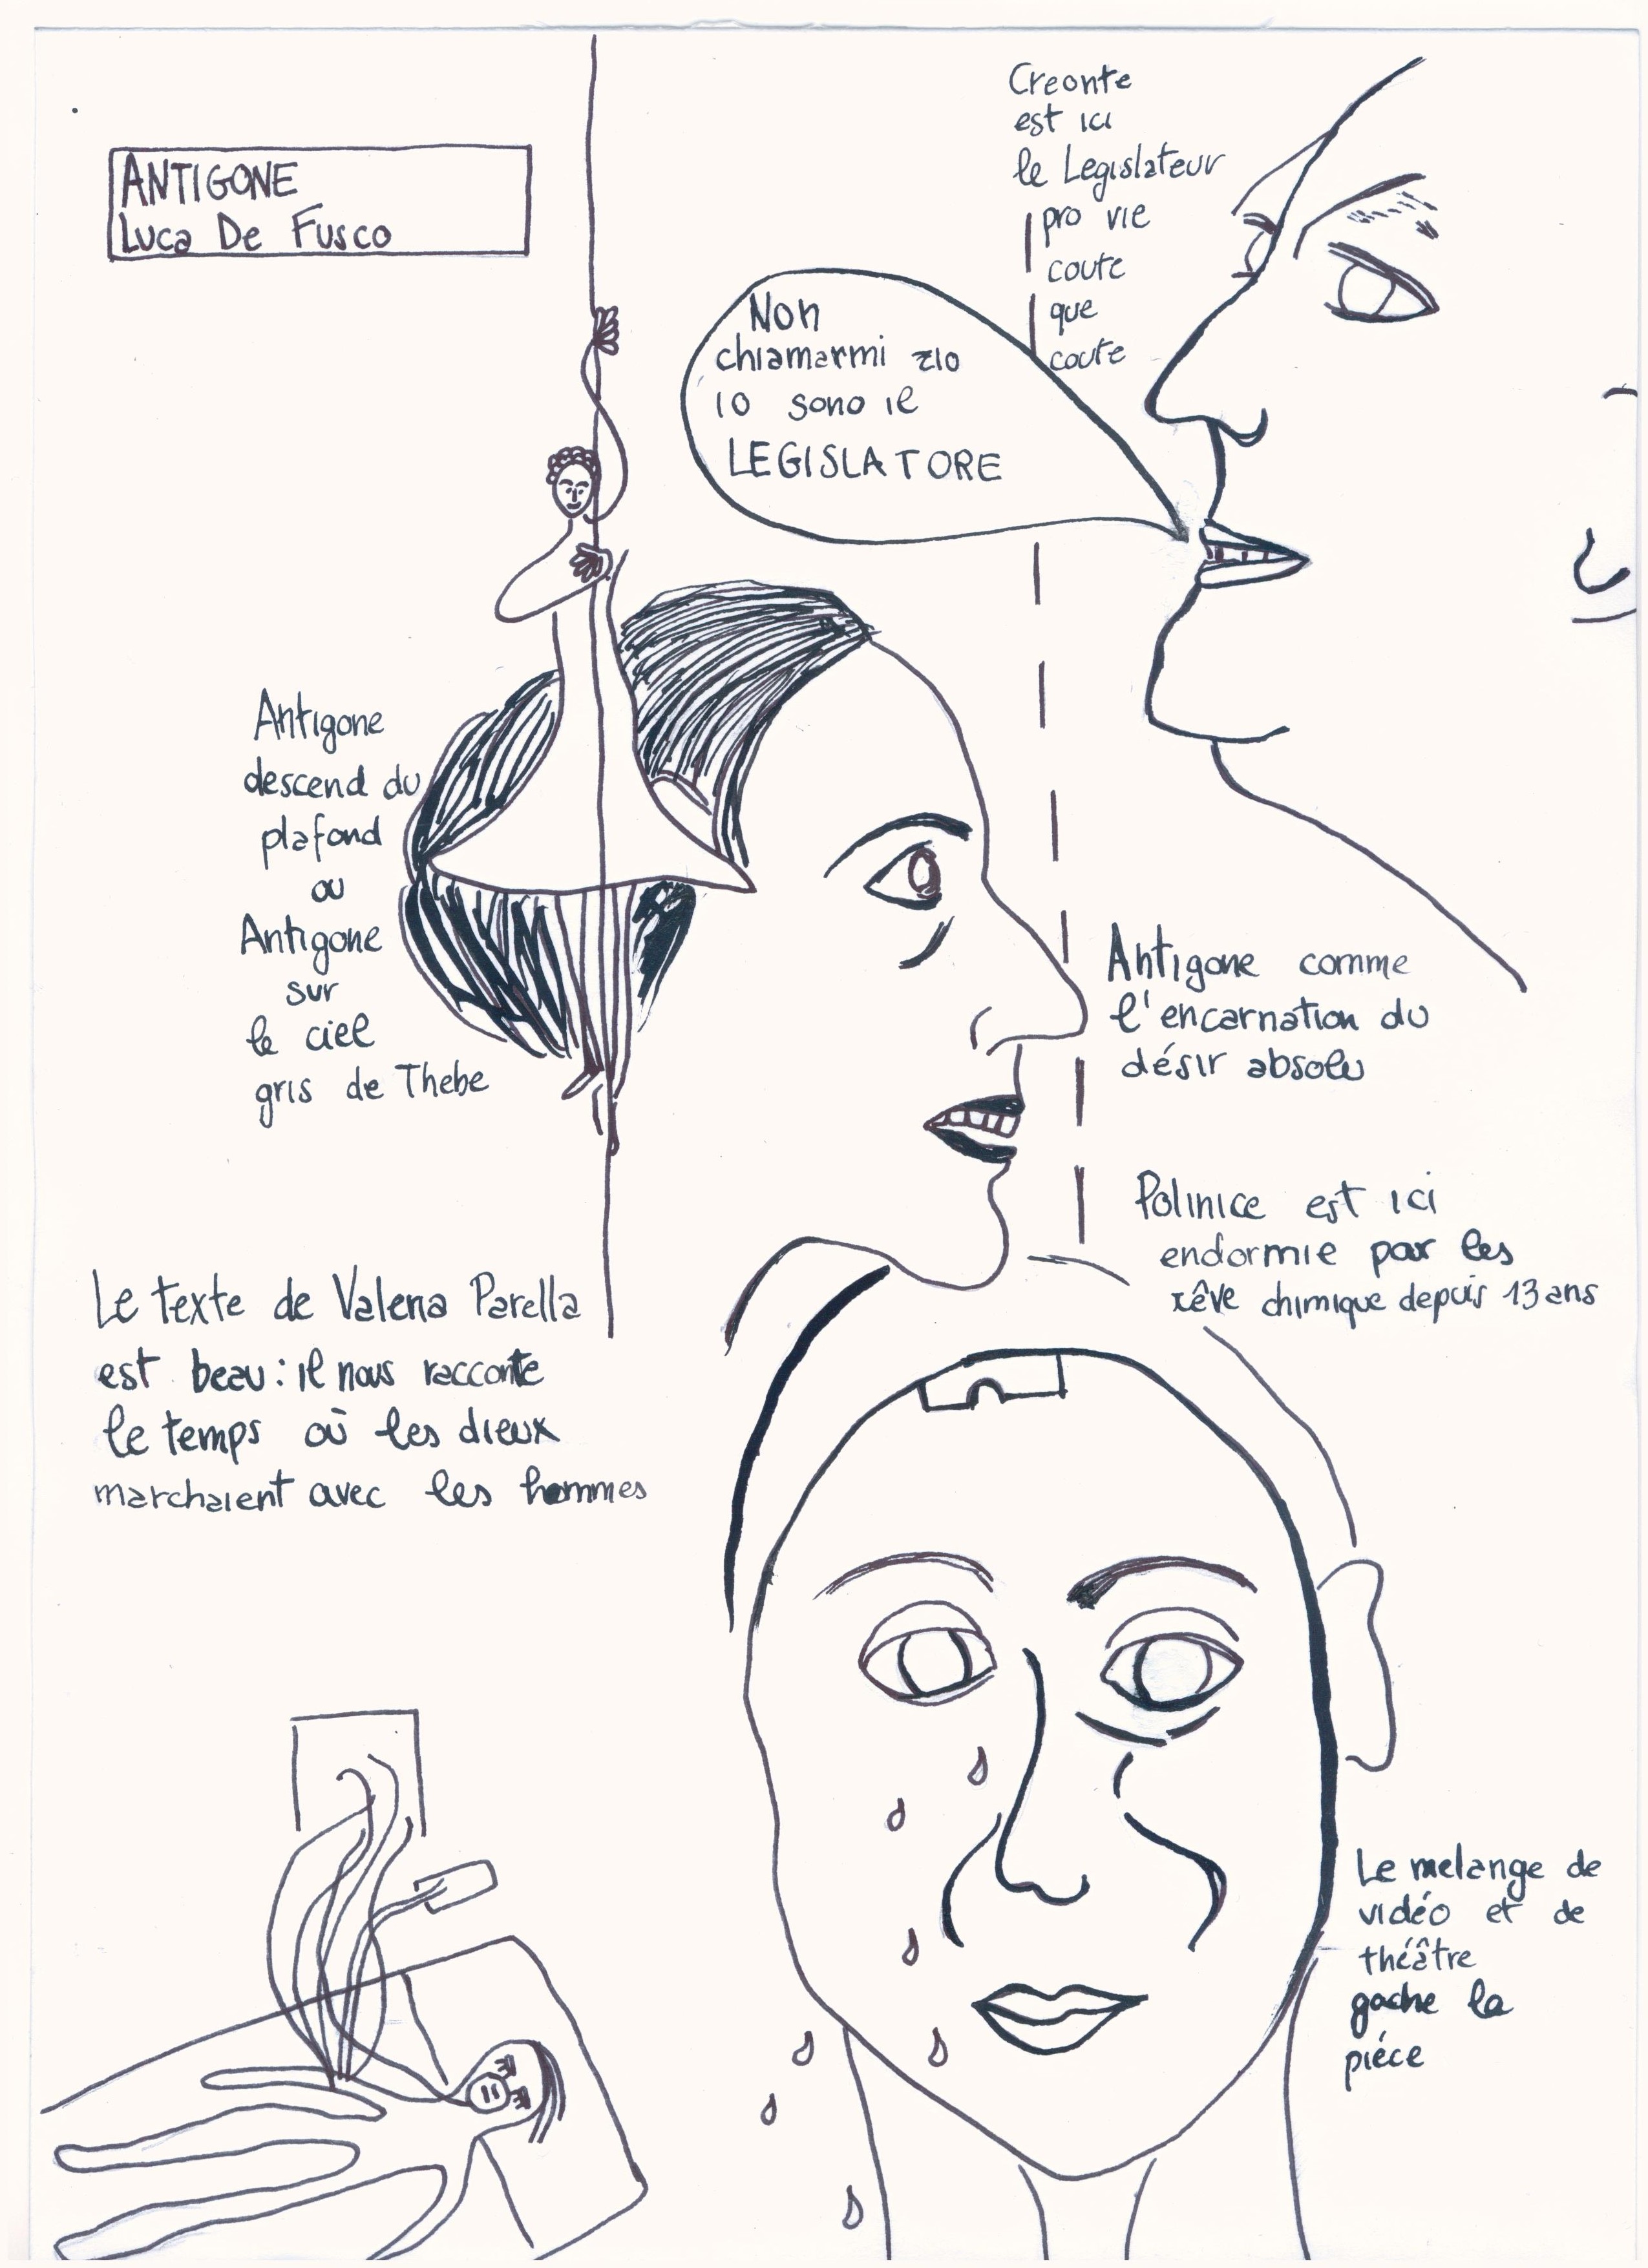 ANTIGONE
Luca De Fusco
Creonte
est ici
le Legislateur
pro vie
coute
que
coute
Non
chiamarmi zio
io sono il
LEGISLATORE
Antigone
descend du
plafond
ou
Antigone
sur
le ciel
gris de Thebe
Antigone comme
l'encarnation du
désir absolu
Polinice est ici
endormie par les
rêve chimique depuis 13 ans
Le texte de Valeria Parella
est beau : il nous racconte
le temps où les dieux
marchaient avec les hommes
Le melange de
vidéo et de
théâtre
gache la
piéce